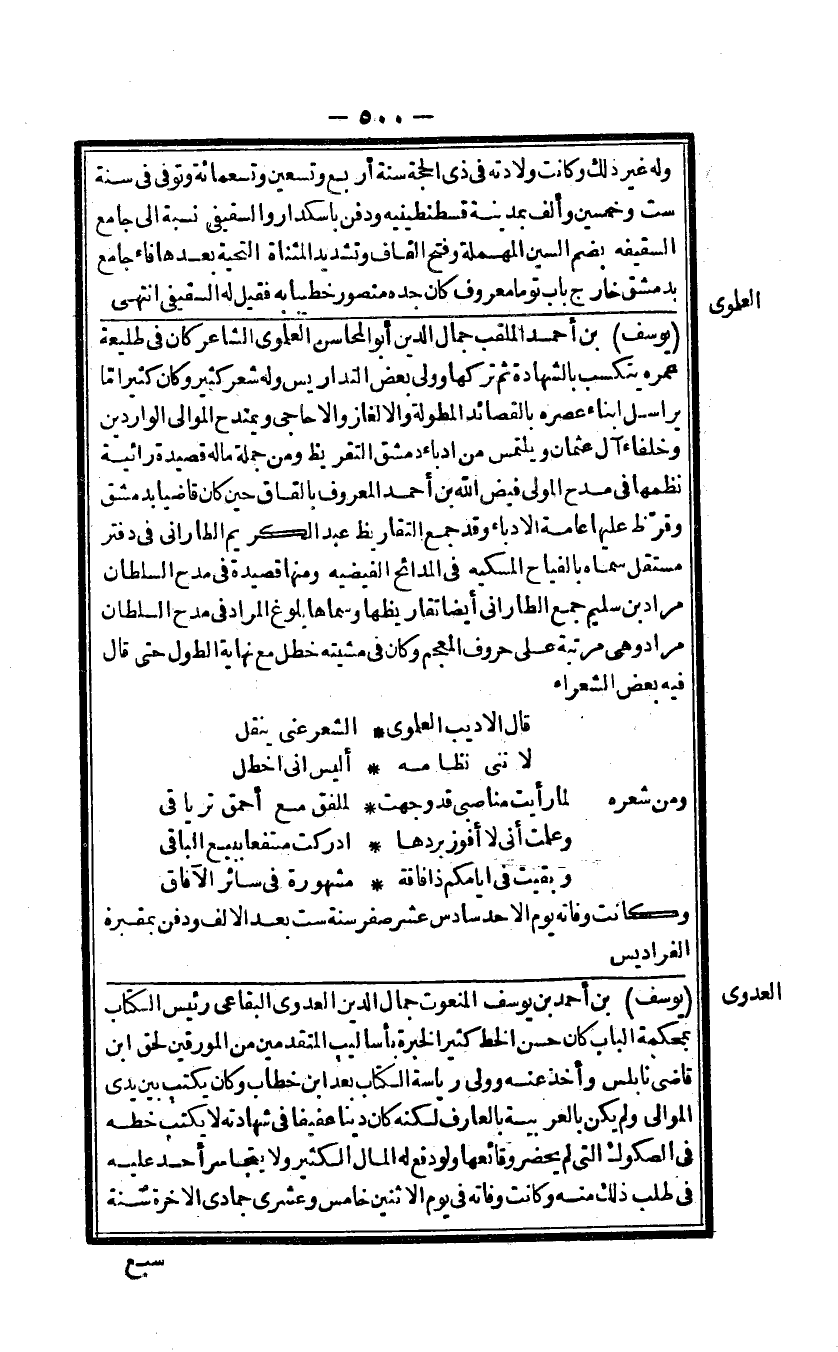 — ٥٠٠ —
وله غير ذلك وكانت ولادته فى ذى الحجة سنة أربع وتسعين وتسعمائة وتوفى فى سنة
ست وخمسين وألف بمدينة قسطنطينيه ودفن باسكدار والسقيفى نسبة الى جامع
السقيفه بضم السين المهملة وفتح القاف وتشديد المثناة التحتية بعدها فاء جامع
بدمشق خارج باب توما معروف كان جده منصور خطيبا به فقيل له السقيفى انتهى
العلموى
(يوسف) بن أحمد الملقب جمال الدين أبو المحاسن العلموى الشاعر كان فى طليعة
عمره يتكسب بالشهادة ثم تركها وولى بعض التداريس وله شعر كثير وكان كثيرا مّا
يراسل ابناء عصره بالقصائد المطولة والالغاز والاحاجى ويمتدح الموالى الواردين
وخلفاء آل عثمان ويلتمس من ادباء دمشق التقريظ ومن جملة ماله قصيدة رائية
نظمها فى مدح المولى فيض الله بن أحمد المعروف بالقاق حين كان قاضيا بدمشق
وقرّظ عليها عامة الادباء وقد جمع التقاريظ عبد الكريم الطارانى فى دفتر
مستقل سماه بالفياح المسكيه فى المدائح الفيضيه ومنها قصيدة فى مدح السلطان
مراد بن سليم جمع الطارانى أيضا تقاريظها وسماها بلوغ المراد فى مدح السلطان
مراد وهى مرتبة على حروف المعجم وكان فى مشيته خطل مع نهاية الطول حتى قال
فيه بعض الشعراء
قال الاديب العلموى * الشعر عنى ينقل
لا تنى نظامه * أليس انى اخطل
ومن شعره لما رأيت مناصبى قد وجهت * للفق مع أحمق ترياقى
وعلمت أنى لا أفوز بردها * ادركت منتفعا ببيع الباقى
وبقيت فى ايامكم ذا فاقة * مشهورة فى سائر الآفاق
وكانت وفاته يوم الاحد سادس عشر صفر سنة ست بعد الالف ودفن بمقبرة
الفراديس
العدوى
(يوسف) بن أحمد بن يوسف المنعوت جمال الدين العدوى البقاعى رئيس الكتاب
بمحكمة الباب كان حسن الخط كثير الخبرة بأساليب المتقدمين من المورقين لحق ابن
قاضى نابلس وأخذ عنه وولى رياسة الكتاب بعد ابن خطاب وكان يكتب بين يدى
الموالى ولم يكن بالعربية بالعارف لكنه كان دينا عفيفا فى شهادته لا يكتب خطه
فى الصكوك التى لم يحضر وقائعها ولو دفع له المال الكثير ولا يتجاسر أحد عليه
فى طلب ذلك منه وكانت وفاته فى يوم الاثنين خامس وعشرى جمادى الاخرة سنة
سبع